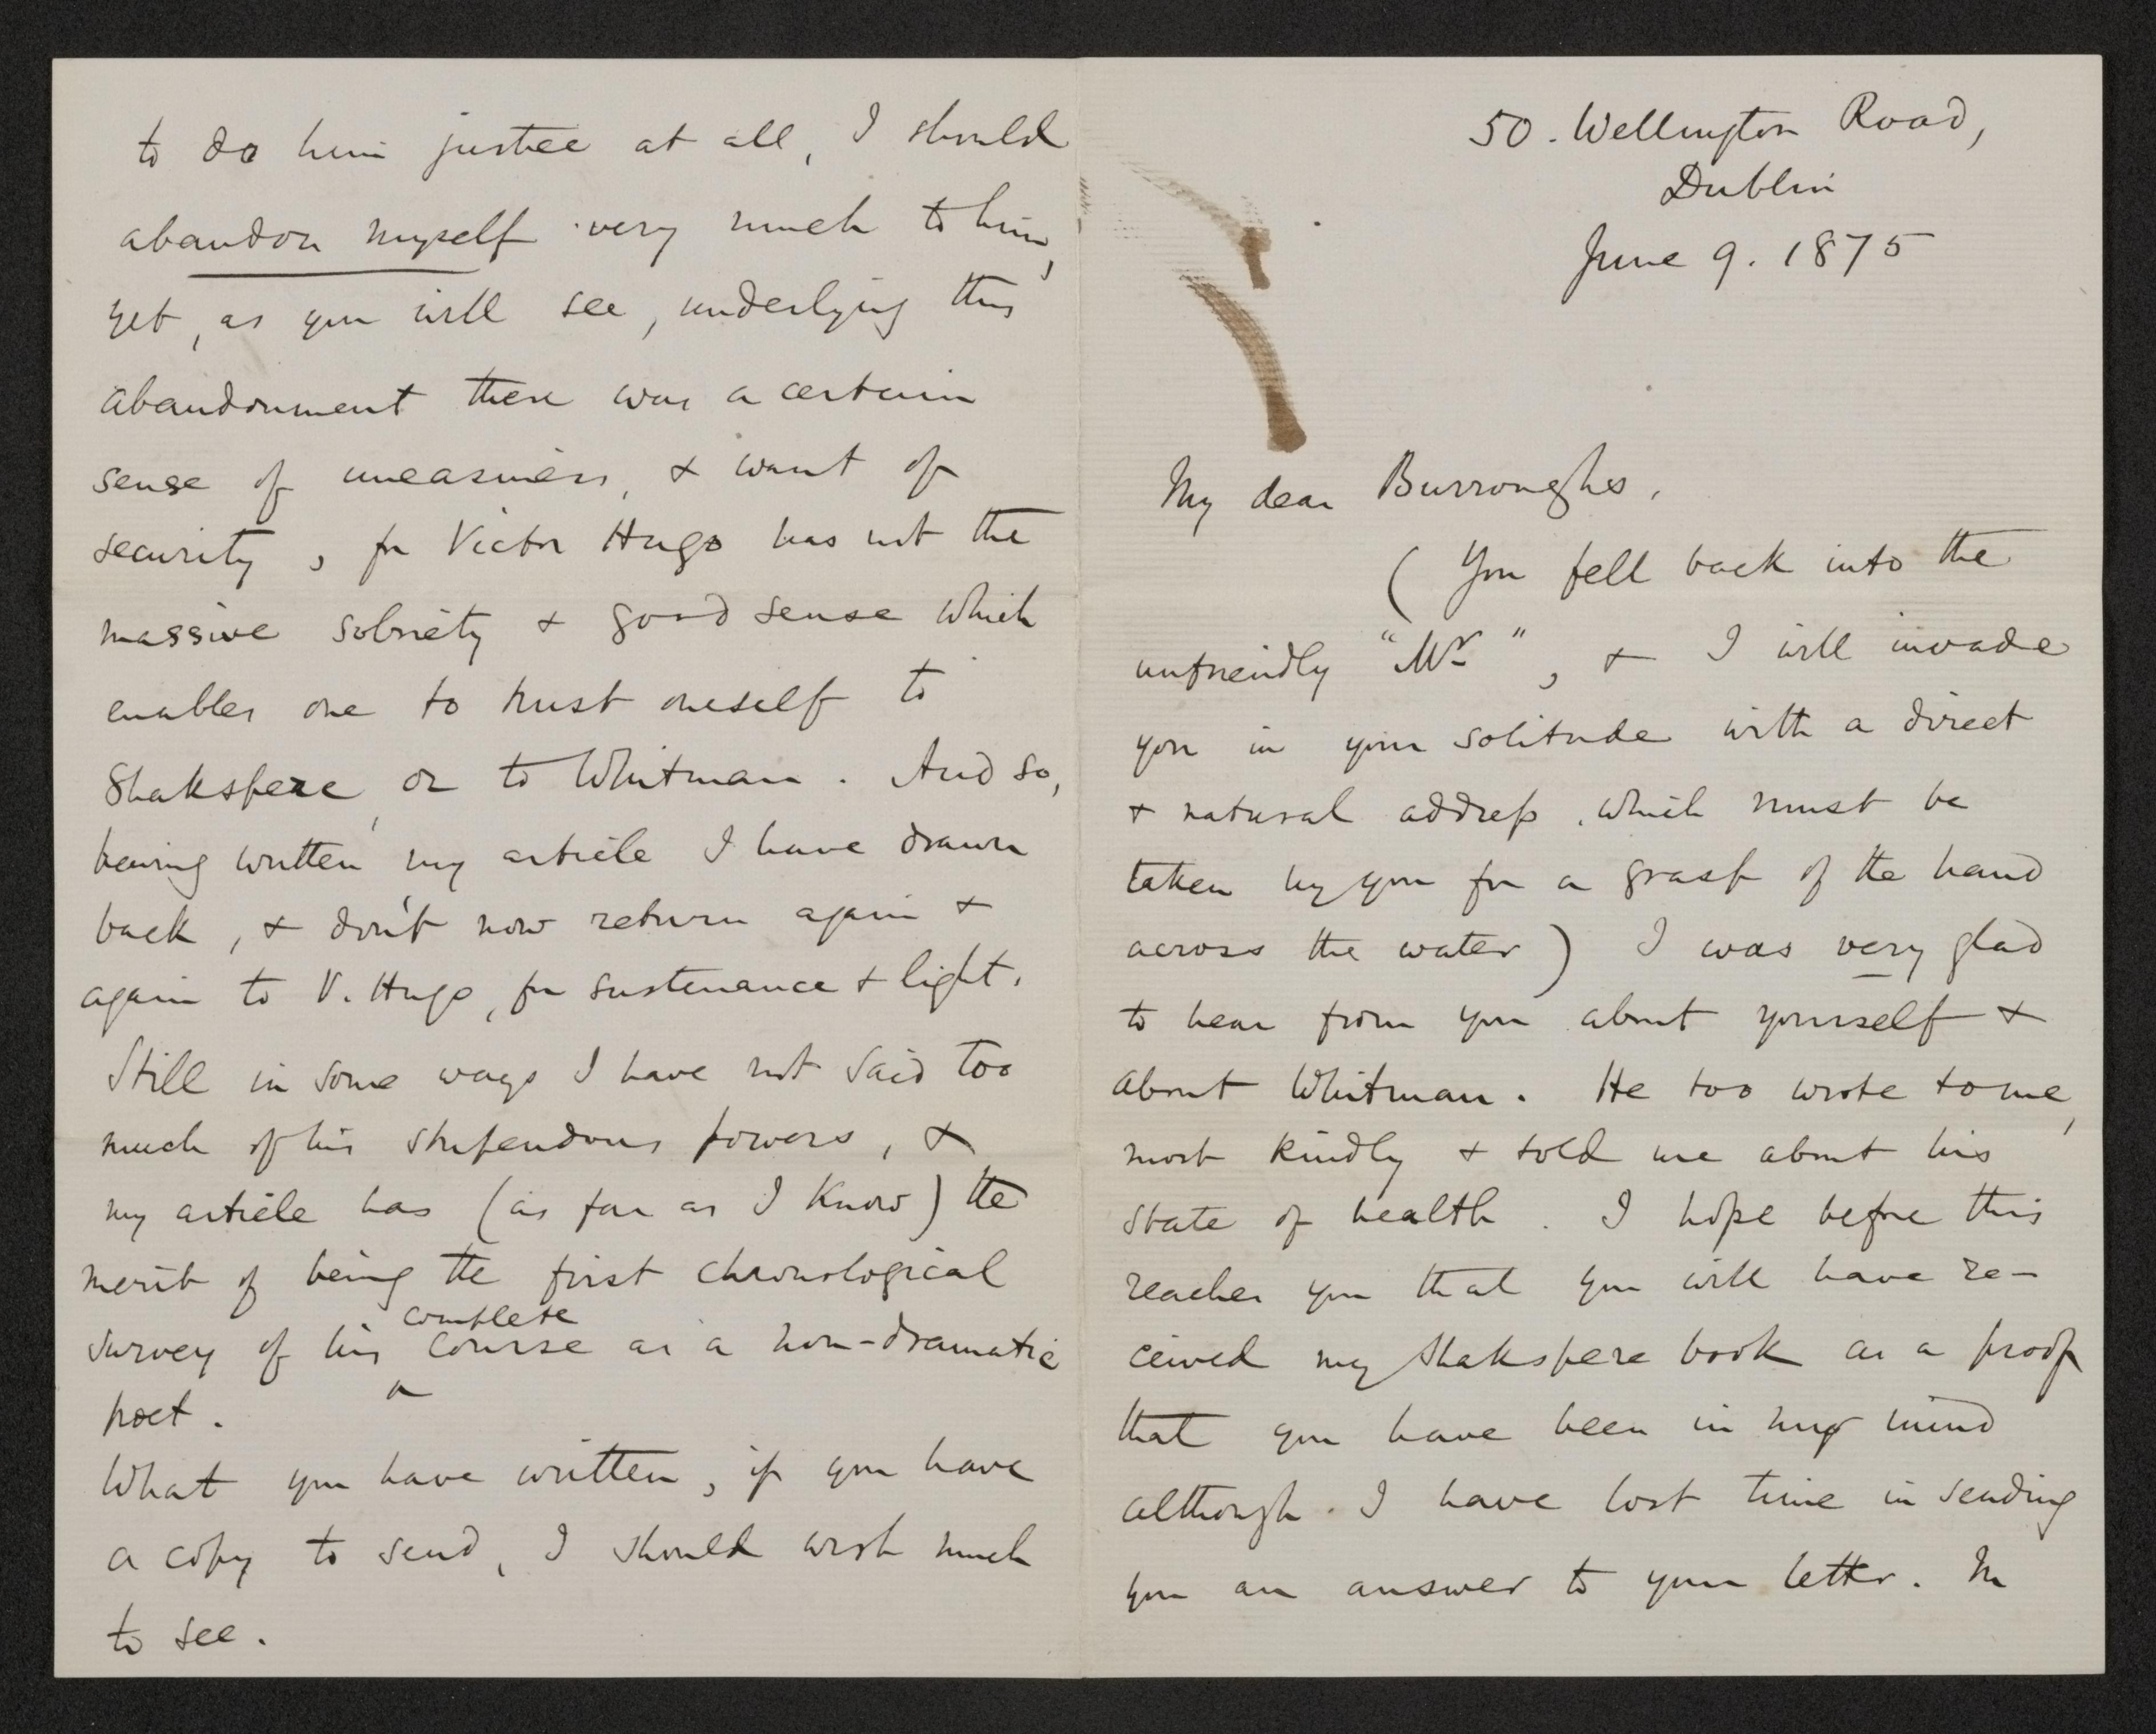 50. Wellington Road,
Dublin
June 9. 1875
My dear Burroughs,
( You fell back into the
unfriendly "Mr", & I will invade
you in your solitude with a direct
& natural address, which must be
taken by you for a grasp of the hand
across the water) I was very glad
to hear from you about yourself &
about Whitman. He too wrote to me,
most kindly & told me about his
state of health. I hope before this
reaches you that you will have re-
ceived my Shakspere book as a proof
that you have been in my mind
although I have lost time in sending
you an answer to your letter. In
to do him justice at all, I should
abandon myself very much to him,
yet, as you will see, underlying this
abandonment there was a certain
sense of uneasiness, & want of
security, for Victor Hugo has not the
massive sobriety & good sense which
enables one to trust oneself to
Shakspere, or to Whitman. And so,
having written my article I have drawn
back, & don't now return again &
again to V. Hugo, for sustenance & light.
Still in some ways I have not said too
much of his stupendous powers, &
my article has (as far as I know) the
merit of being the first chronological
survey of his complete course as a non-dramatic
poet.
What you have written, if you have
a copy to send, I should wish much
to see.